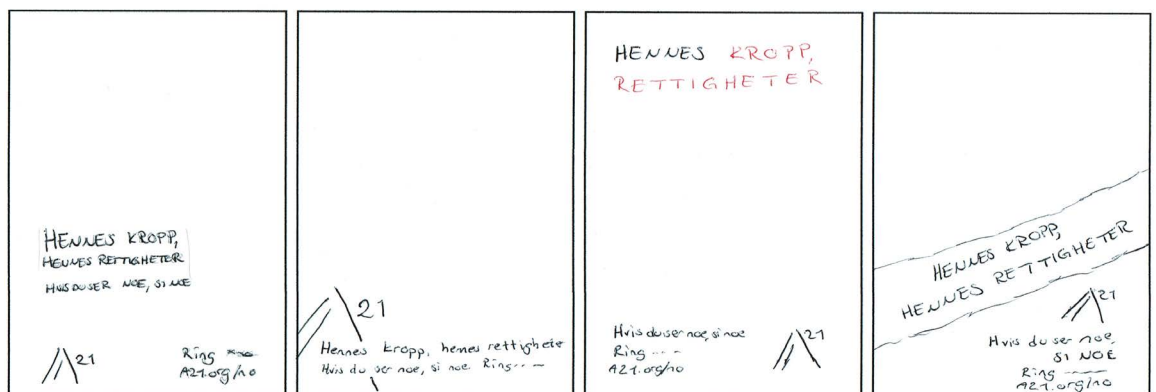 HENNES KROPP,
HENNES RETTIGHETER
HVIS DU SER NOE, SI NOE
21
Ring
A21.org/no
21
Hennes kropp, hennes rettigheter
Hvis du ser noe, si noe. Ring....
HENNES KROPP,
RETTIGHETER
Hvis du ser noe, si noe
Ring ....
A21.org/no
21
HENNES KROPP,
HENNES RETTIGHETER
21
Hvis du ser noe,
SI NOE
Ring
A21.org/no